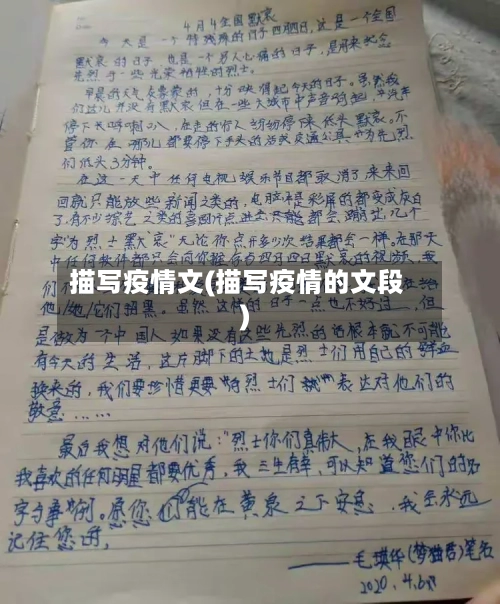 4月4全国默哀
今天是一个特殊的日子四月四日,这是一个全国
默哀的日子,也是一个另人心痛的日子,是用来纪念
先烈于一些光荣牺牲的烈士。
早晨的天气灰蒙蒙的,十分映得起今天的日子。虽然我
们这儿并没有默哀但在一些大城市中声音响起,令汽车
停下
低头默哀。不
管你在哪儿都要停下手头的活或交通公具为先烈
们低头3分钟。
在这一天中任何电视娱乐节目都取消了来来回
回就只能放些新闻之类的,电脑
彩屏的都变成灰白
了,有不少综艺之类的
点进去只能都会
几个
字"为烈士默哀"无论你点开多少次结果都会一样,在那天
中任何软件都只会
四月四日默哀的视频。我
描写疫情文(描写疫情的文段
)
他/她/它们默哀。虽然这样的日子一点也不好过,但
是做为一个中国人如果没有这些先烈的话根本就不可能
有今天的生活,这片脚下的土地是烈士们用自己的鲜血
换来的,我们要珍惜更要"向烈士们
"表达对他们的
敬意……
最后我想对他们说:"烈士你们真伟大,在我眼中你比
我喜欢的任何明星都要优秀,我三生有幸,可以知道您们的名
字与事例。愿您们能在黄泉之下安息,我会永远
记住您们,
——毛琪华(梦独君)笔名
2020.4.6